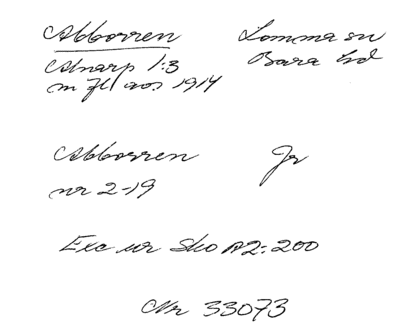 Abborren Lomma sn
Alnarp 1:3 Bara hd
m fl aos 1914
Abborren Jr
nr 2-19
Exc ur Sko A2:200
Nr 33073